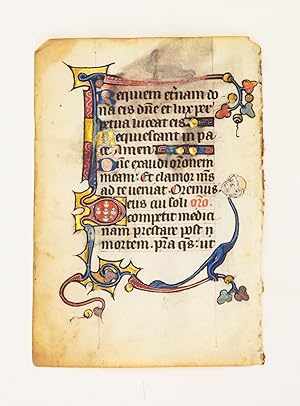 Requiem et̃nam do
na eis dñe et lux per
petua luceat eis
Requiescant in pa
ce Amen
Dñe exaudi orõnem
meam Et clamor m̃s
ad te veniat Oremus
Deus cui soli orõ
competit medici
nam prestare post
mortem pra qs̃ ut